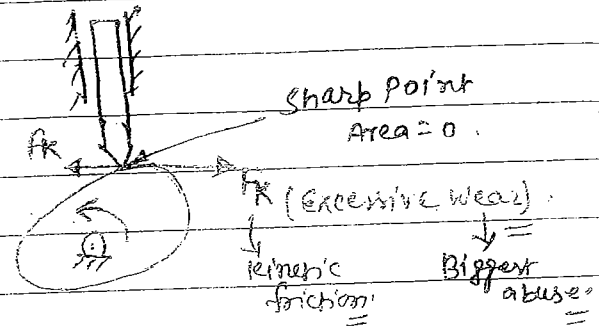 Sharp Point
Area = 0.
fK
fK (Excessive Wear).
Kinetic
friction.
Biggest
abuse.